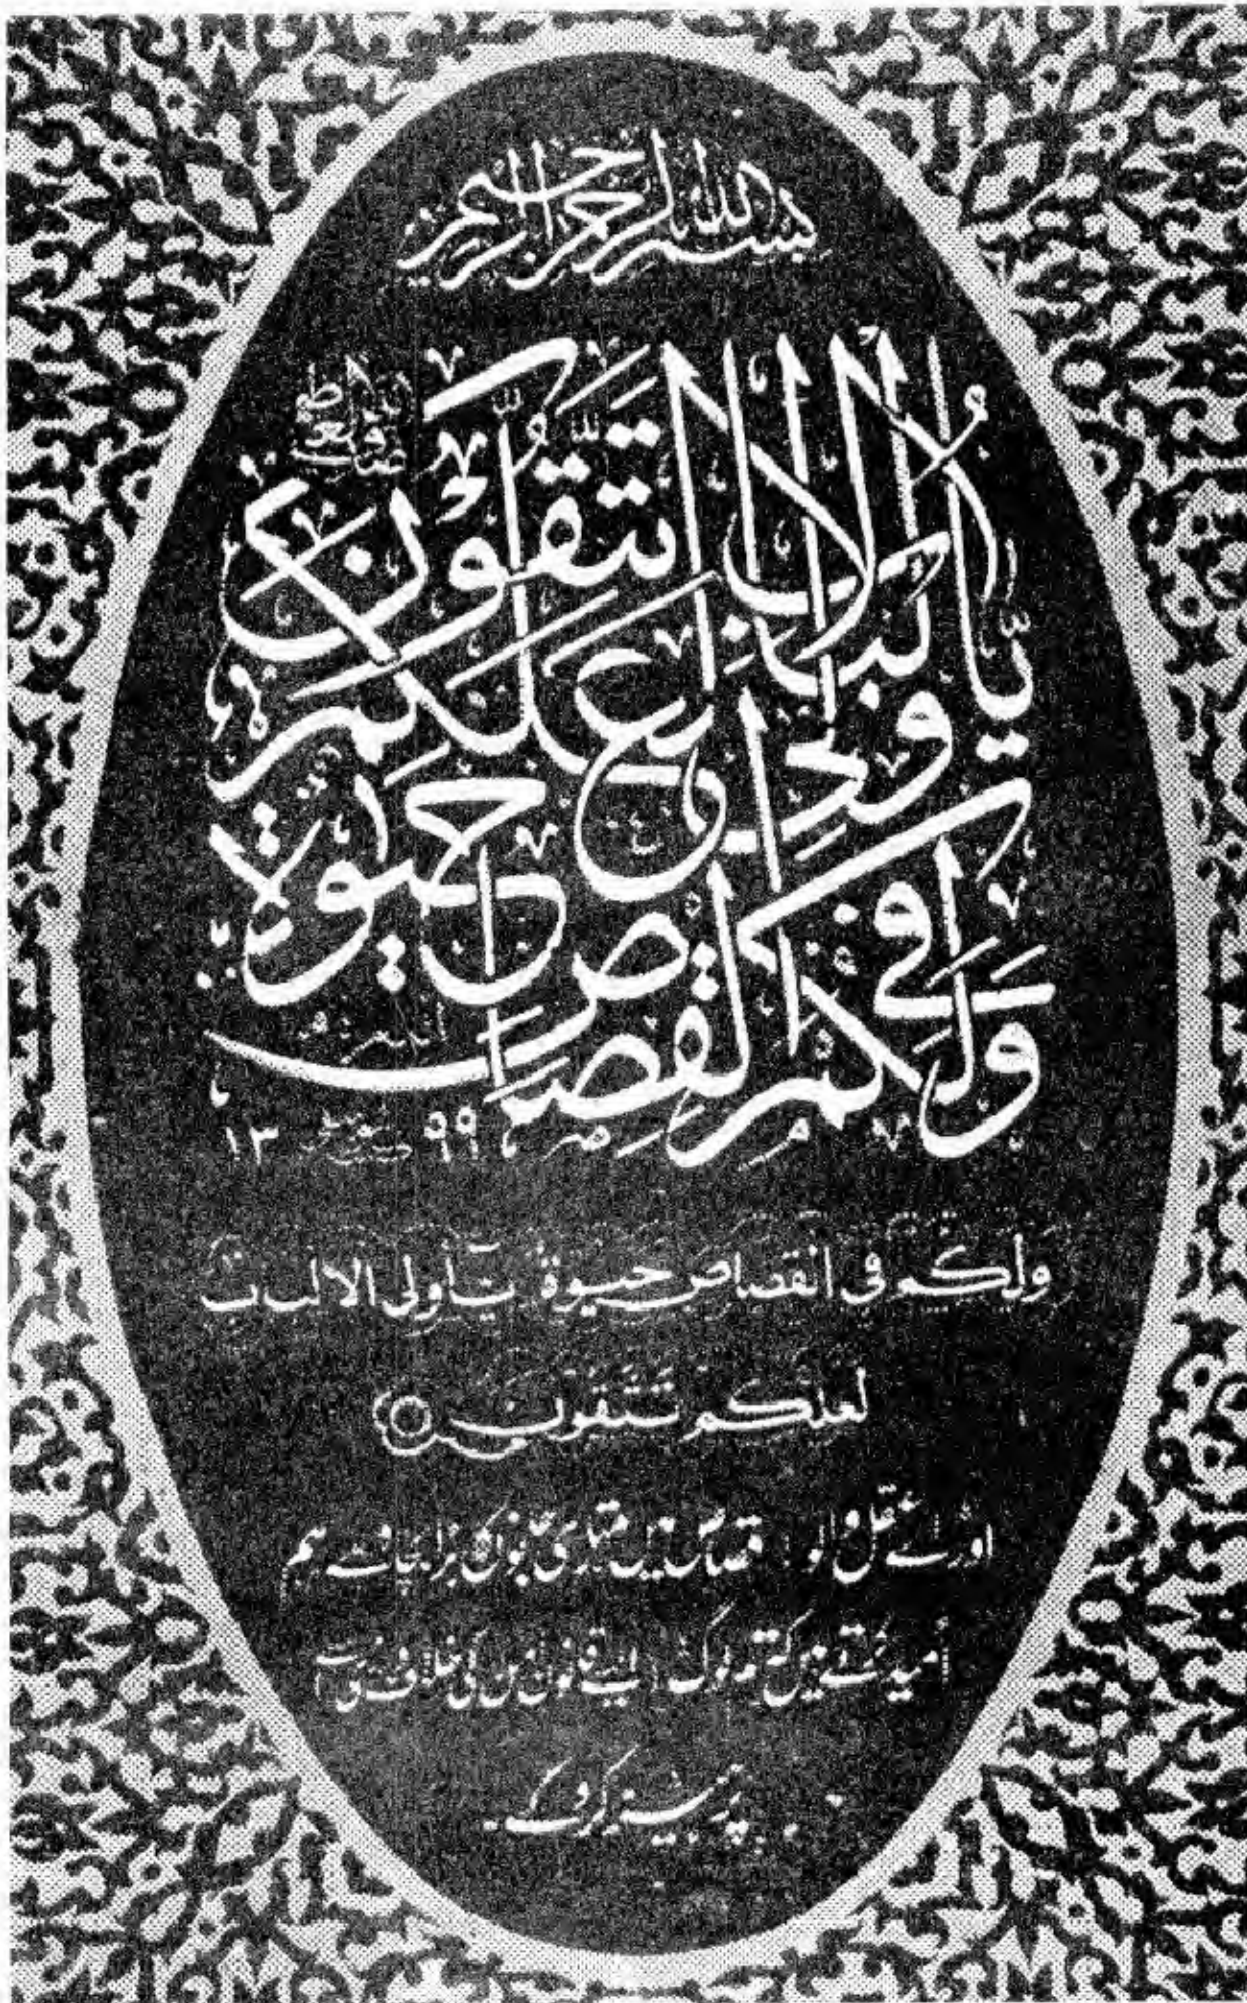 بسم الله الرحمن الرحيم
ولكم في القصاص حيوة
يا أولي الألباب
لعلكم تتقون
١٣٩٩
ولكم في القصاص حيوة يٰأولى الالباب
لعلكم تتقون
اور اے عقل والو قصاص میں تمہاری جانوں کا بڑا بچاؤ ہے ہم
اُمید کرتے ہیں کہ تم لوگ ایسے قانون کی خلاف ورزی سے
پرہیز کرو گے۔